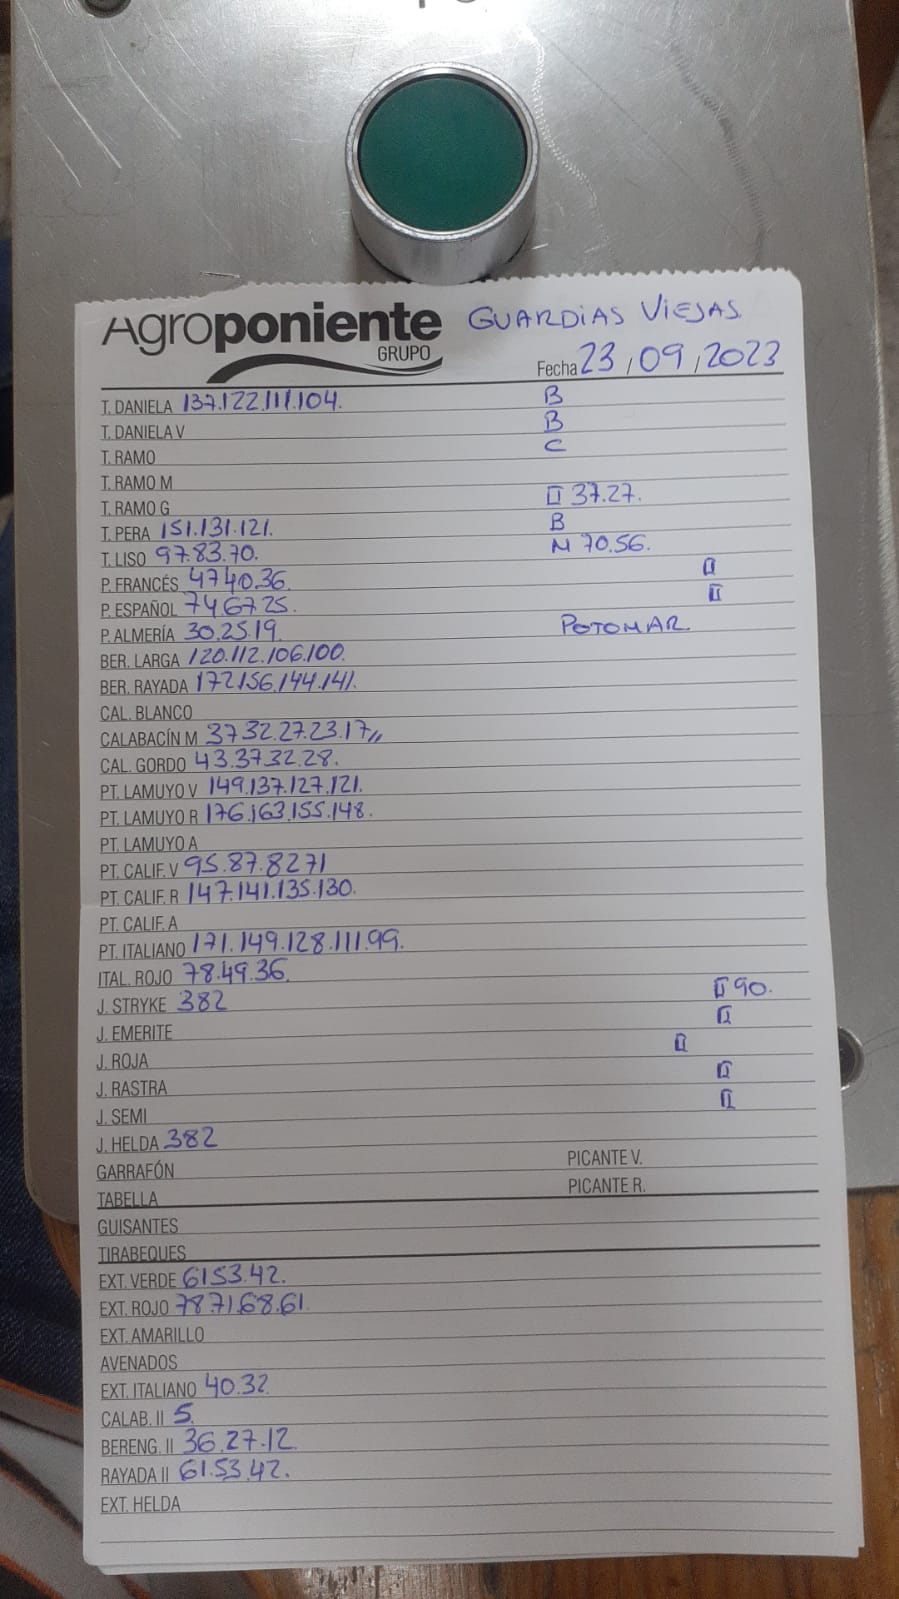 Agroponiente GUARDIAS VIEJAS.
GRUPO
Fecha 23/09/2023
T. DANIELA 137.122.111.104. B
T. DANIELA V B
T. RAMO C
T. RAMO M
T. RAMO G II 37.27.
T. PERA 151.131.121. B
T. LISO 97.83.70. M 70.56.
P. FRANCÉS 47.40.36. II
P. ESPAÑOL 74.67.25. II
P. ALMERÍA 30.25.19. POTOMAR.
BER. LARGA 120.112.106.100.
BER. RAYADA 172.156.144.141.
CAL. BLANCO
CALABACÍN M 37.32.27.23.17,,
CAL. GORDO 43.37.32.28.
PT. LAMUYO V 149.137.127.121.
PT. LAMUYO R 176.163.155.148.
PT. LAMUYO A
PT. CALIF. V 95.87.82.71
PT. CALIF. R 147.141.135.130.
PT. CALIF. A
PT. ITALIANO 171.149.128.111.99.
ITAL. ROJO 78.49.36.
J. STRYKE 382 II 90.
J. EMERITE II
J. ROJA II
J. RASTRA II
J. SEMI II
J. HELDA 382
GARRAFÓN PICANTE V.
TABELLA PICANTE R.
GUISANTES
TIRABEQUES
EXT. VERDE 61.53.42.
EXT. ROJO 78.71.68.61
EXT. AMARILLO
AVENADOS
EXT. ITALIANO 40.32.
CALAB. II 5.
BERENG. II 36.27.12.
RAYADA II 61.53.42.
EXT. HELDA